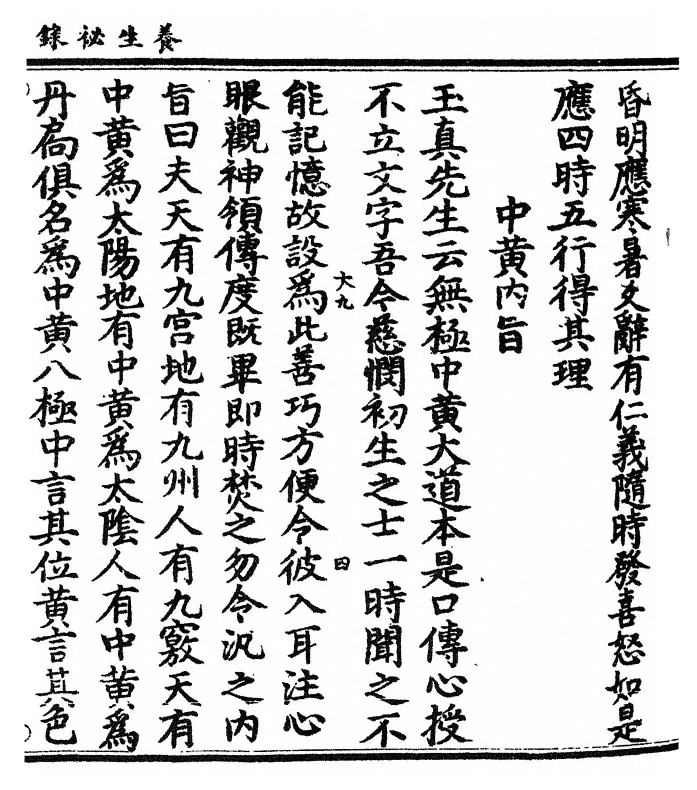 養生祕錄
昏明應寒暑爻辭有仁義隨時發喜怒如是
應四時五行得其理
中黄内旨
玉真先生云無極中黄大道本是口傳心授
不立文字吾今慈憫初生之士一時聞之不
大九
四
能記憶故設爲此善巧方便令彼入耳注心
眼觀神領傳度既畢即時焚之勿令汎之内
旨曰夫天有九宫地有九州人有九竅天有
中黄爲太陽地有中黄爲太陰人有中黄爲
丹扃俱名爲中黄八極中言其位黄言其色